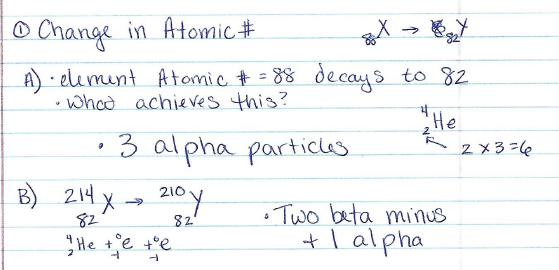 ① Change in Atomic # ₈₈X → ₈₂Y
A) · element Atomic # = 88 decays to 82
· What achieves this?
⁴₂He
· 3 alpha particles 2 x 3 = 6
B) ²¹⁴₈₂X → ²¹⁰₈₂Y · Two beta minus
⁴₂He + ⁰₋₁e + ⁰₋₁e + 1 alpha